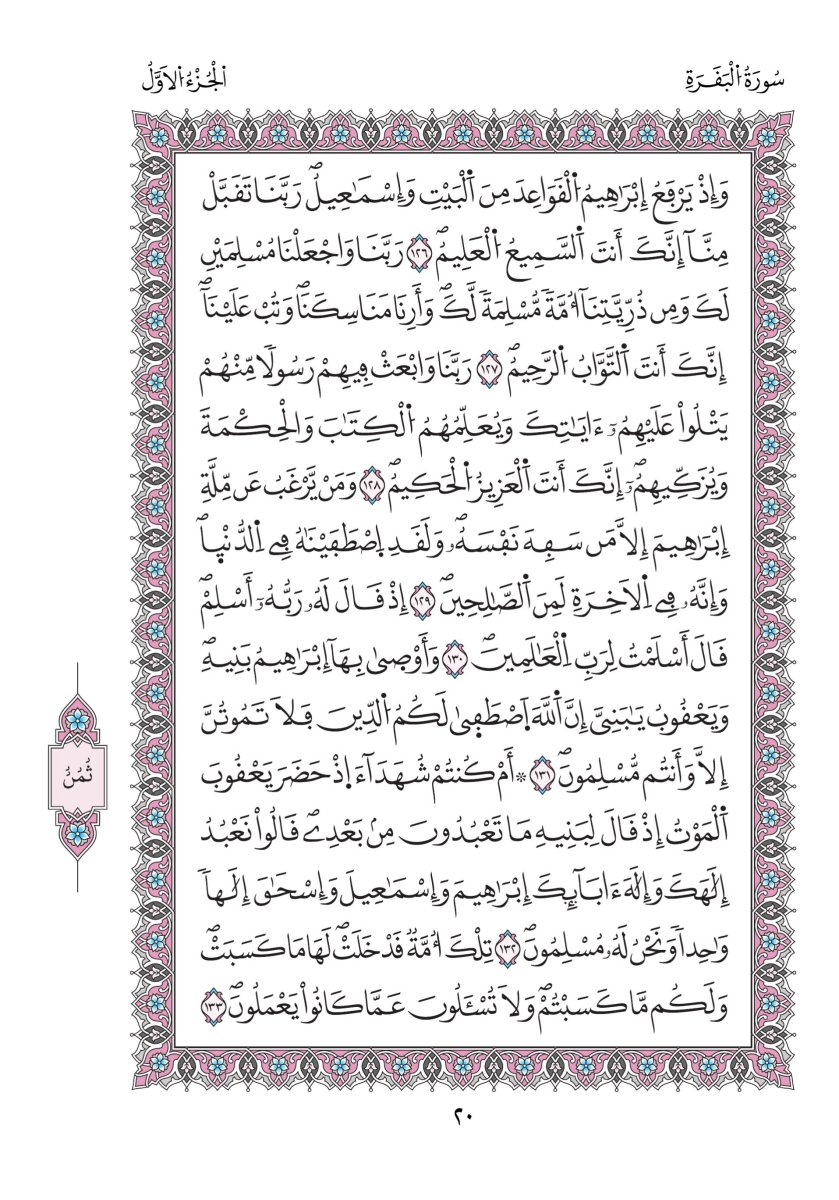 سُورَةُ اُ۬لْبَقَرَةِ
اَ۬لْجُزْءُ اُ۬لَاوَّلُ
وَإِذْ يَرْفَعُ إِبْرَٰهِيمُ اُ۬لْقَوَاعِدَ مِنَ اَ۬لْبَيْتِ وَإِسْمَٰعِيلُۖ رَبَّنَا تَقَبَّلْ
مِنَّآ إِنَّكَ أَنتَ اَ۬لسَّمِيعُ اُ۬لْعَلِيمُۖ ١٢٦ رَبَّنَا وَاجْعَلْنَا مُسْلِمَيْنِ
لَكَ وَمِن ذُرِّيَّتِنَآ أُمَّةٗ مُّسْلِمَةٗ لَّكَۖ وَأَرِنَا مَنَاسِكَنَاۖ وَتُبْ عَلَيْنَآۖ
إِنَّكَ أَنتَ اَ۬لتَّوَّابُ اُ۬لرَّحِيمُۖ ١٢٧ رَبَّنَا وَابْعَثْ فِيهِمْ رَسُولٗا مِّنْهُمْ
يَتْلُواْ عَلَيْهِمُۥٓ ءَايَٰتِكَ وَيُعَلِّمُهُمُ اُ۬لْكِتَٰبَ وَالْحِكْمَةَ
وَيُزَكِّيهِمُۥٓۖ إِنَّكَ أَنتَ اَ۬لْعَزِيزُ اُ۬لْحَكِيمُۖ ١٢٨ وَمَنْ يَّرْغَبُ عَن مِّلَّةِ
إِبْرَٰهِيمَ إِلَّا مَن سَفِهَ نَفْسَهُۥۖ وَلَقَدِ اِ۪صْطَفَيْنَٰهُ فِے اِ۬لدُّنْي۪اۖ
وَإِنَّهُۥ فِے اِ۬لَاخِرَةِ لَمِنَ اَ۬لصَّٰلِحِينَۖ ١٢٩ إِذْ قَالَ لَهُۥ رَبُّهُۥٓ أَسْلِمْۖ
قَالَ أَسْلَمْتُ لِرَبِّ اِ۬لْعَٰلَمِينَۖ ١٣٠ وَأَوْصىٰ بِهَآ إِبْرَٰهِيمُ بَنِيهِۖ
وَيَعْقُوبُ يَٰبَنِيَّ إِنَّ اَ۬للَّهَ اَ۪صْطَفىٰ لَكُمُ اُ۬لدِّينَ فَلَا تَمُوتُنَّ
إِلَّا وَأَنتُم مُّسْلِمُونَۖ ١٣١ ۞ أَمْ كُنتُمْ شُهَدَآءَ اِ۪ذْ حَضَرَ يَعْقُوبَ
اَ۬لْمَوْتُ إِذْ قَالَ لِبَنِيهِ مَا تَعْبُدُونَ مِنۢ بَعْدِےۖ قَالُواْ نَعْبُدُ
إِلَٰهَكَ وَإِلَٰهَ ءَابَآئِكَ إِبْرَٰهِيمَ وَإِسْمَٰعِيلَ وَإِسْحَٰقَ إِلَٰهاٗ
وَٰحِداٗ وَنَحْنُ لَهُۥ مُسْلِمُونَۖ ١٣٢ تِلْكَ أُمَّةٞ قَدْ خَلَتْۖ لَهَا مَا كَسَبَتْۖ
وَلَكُم مَّا كَسَبْتُمْۖ وَلَا تُسْـَٔلُونَ عَمَّا كَانُواْ يَعْمَلُونَۖ ١٣٣
ثُمُنُ
٢٠